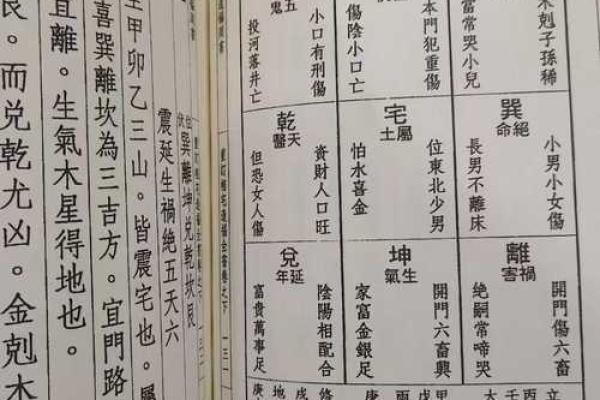 木剋子孫稀
當常哭小兒
本門犯重傷
傷陰小口亡
五鬼
小口有刑傷
投河落井亡
巽
絕命
小男小女傷
長男不離床
宅
屬土
位東北少男
怕水喜金
乾
天醫
資財人口旺
但恐女人傷
離
禍害
開門傷六畜
絕嗣常啼哭
坤
生氣
開門六畜興
家富金銀足
兌
延年
陰陽相配合
富貴萬事足
全書卷之下 一三一
巽離坤兌乾坎艮
震延生禍絕五天六
甲卯乙三山。皆震宅也。屬
喜巽離坎為三吉方。宜門路
宜離。生氣木星得地也。
艮。而兌乾尤凶。金剋木